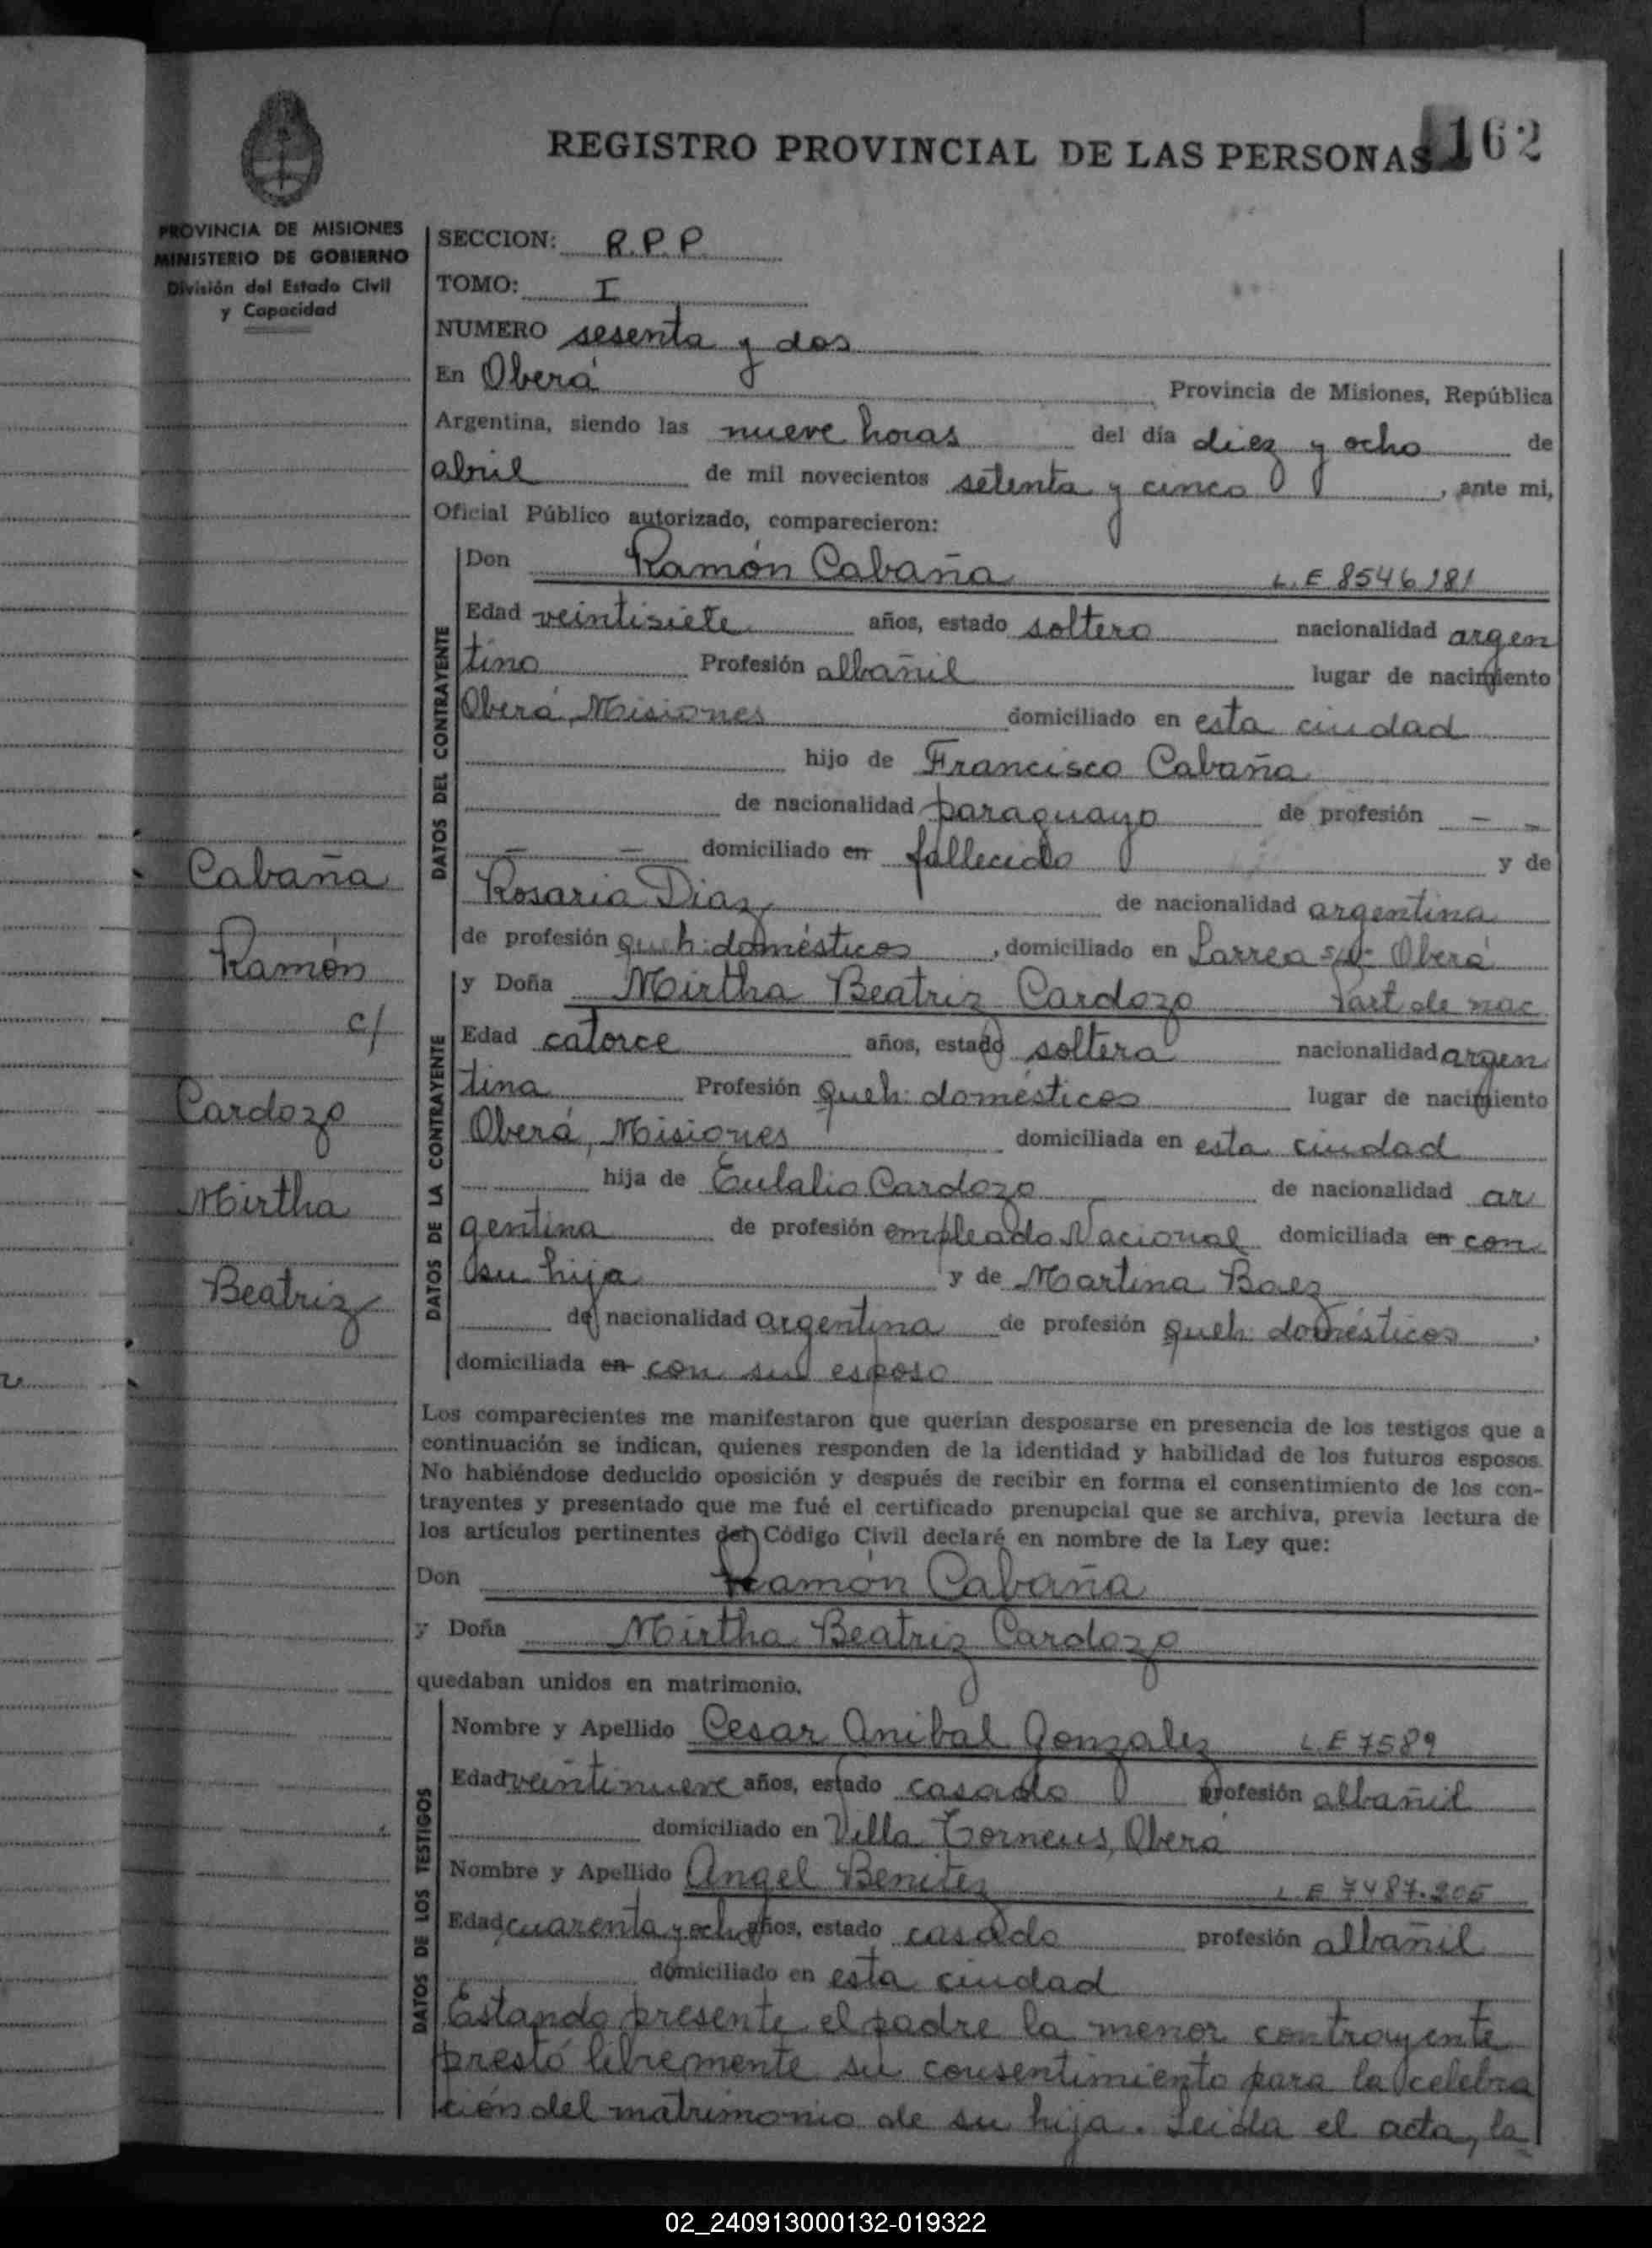 REGISTRO PROVINCIAL DE LAS PERSONAS 162
PROVINCIA DE MISIONES
MINISTERIO DE GOBIERNO
División del Estado Civil
y Capacidad
SECCION: R.P.P.
TOMO: I
NUMERO sesenta y dos
En Oberá Provincia de Misiones, República
Argentina, siendo las nueve horas del día diez y ocho de
abril de mil novecientos setenta y cinco, ante mi,
Oficial Público autorizado, comparecieron:
DATOS DEL CONTRAYENTE
Don Ramón Cabaña L.E 8546181
Edad veintisiete años, estado soltero nacionalidad argen
tino Profesión albañil lugar de nacimiento
Oberá, Misiones domiciliado en esta ciudad
hijo de Francisco Cabaña
de nacionalidad paraguayo de profesión — —
— — domiciliado en fallecido y de
Rosaria Diaz de nacionalidad argentina
de profesión queh: domésticos, domiciliado en Larrea s/n- Oberá
DATOS DE LA CONTRAYENTE
y Doña Mirtha Beatriz Cardozo Part de nac
Edad catorce años, estado soltera nacionalidad argen
tina Profesión queh: domésticos lugar de nacimiento
Oberá, Misiones domiciliada en esta ciudad
hija de Eulalio Cardozo de nacionalidad ar
gentina de profesión empleado Nacional domiciliada en con
su hija y de Martina Baez
de nacionalidad argentina de profesión queh: domésticos,
domiciliada en con su esposo
Cabaña
Ramón
c/
Cardozo
Mirtha
Beatriz
Los comparecientes me manifestaron que querían desposarse en presencia de los testigos que a
continuación se indican, quienes responden de la identidad y habilidad de los futuros esposos.
No habiéndose deducido oposición y después de recibir en forma el consentimiento de los con-
trayentes y presentado que me fué el certificado prenupcial que se archiva, previa lectura de
los artículos pertinentes del Código Civil declaré en nombre de la Ley que:
Don Ramón Cabaña
y Doña Mirtha Beatriz Cardozo
quedaban unidos en matrimonio.
DATOS DE LOS TESTIGOS
Nombre y Apellido Cesar Anibal Gonzalez L.E 7589
Edad veintinueve años, estado casado profesión albañil
domiciliado en Villa Oberá
Nombre y Apellido Angel Benitez L.E 7487.205
Edad cuarenta y ocho años, estado casado profesión albañil
domiciliado en esta ciudad
Estando presente el padre la menor contrayente
prestó libremente su consentimiento para la celebra
ción del matrimonio de su hija. Leida el acta, la
02_240913000132-019322